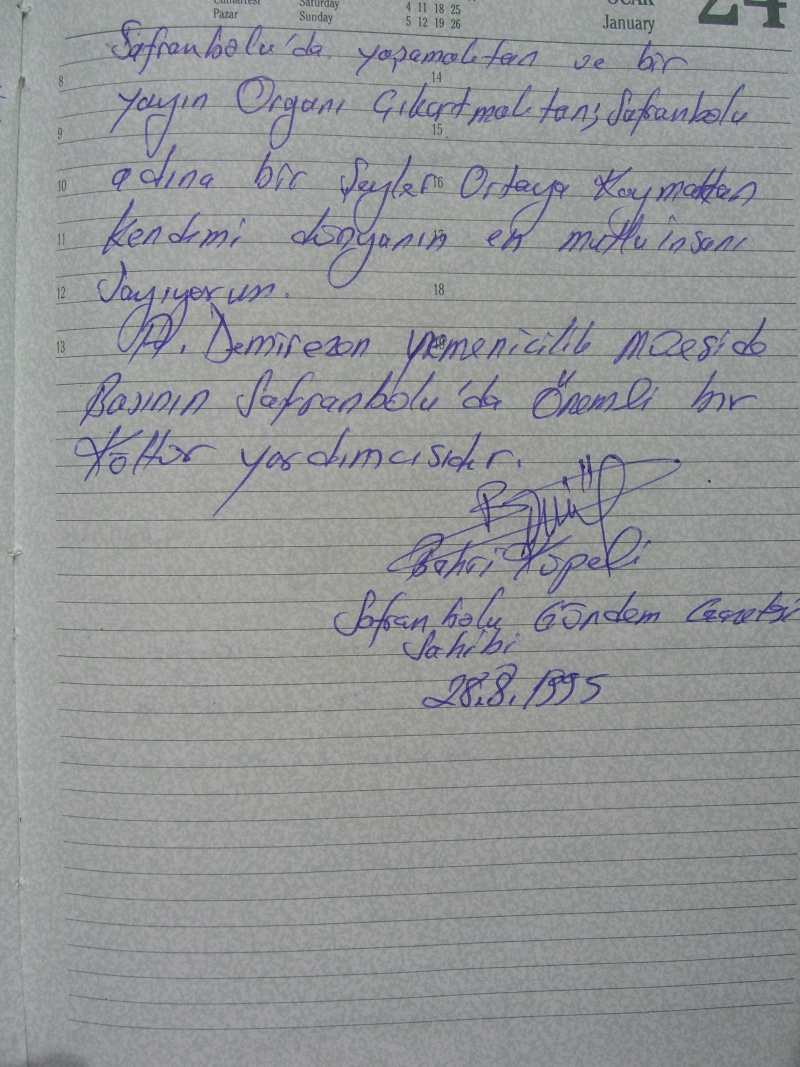 Cumartesi Saturday 4 11 18 25
Pazar Sunday 5 12 19 26
OCAK
January
24
Safranbolu'da yaşamaktan ve bir
8 14
yayın Organı Çıkartmaktan; Safranbolu
9 15
10 adına bir Şeyler 16 Ortaya Koymaktan
11 Kendimi dünyanın en mutlu insanı
12 Sayıyorum. 18
13 A. Demirezen yemenicilik müzeside
Basının Safranbolu'da Önemli bir
Költür yardımcısıdır.
Bahri Köpeli
Safranbolu Gündem Gazetesi
Sahibi
28.8.1995